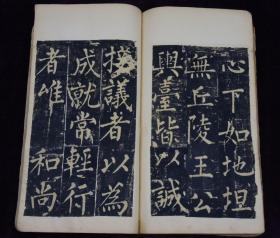 心下如地坦
無丘陵王公
與臺皆以誠
接議者以為
成就常輕行
者唯 和尚